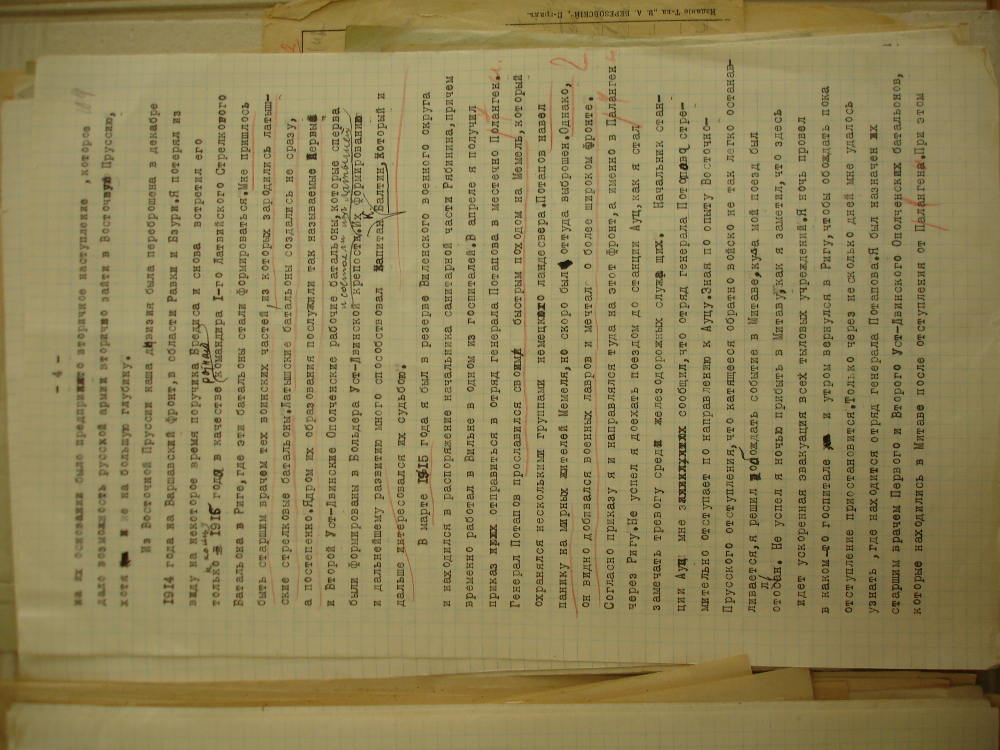 Издание Т-ва „В. А. БЕРЕЗОВСКІЙ“, П-градъ.
109
- 4 -
на их основании было предпринято вторичное наступление ,которое
дало возможность русской армии вторично зайти в Восточную Пруссию,
хотя и не на большую глубину.
Из Восточной Пруссии наша дивизия была переброшена в декабре
1914 года на Варшавский фронт,в области Равки и Бзури.Я потерял из
виду на некоторое время поручика Бредиса и снова встретил его
только к концу 1915 года в качестве ротного командира 1-го Латвийского Стрелкового
Баталъона в Риге,где эти баталъоны стали формироваться.Мне пришлось
быть старшим врачем тех воинских частей,из которых зародились латыш-
ские стрелковые баталъоны.Латышские баталъоны создались не сразу,
а постепенно.Ядром их образования послужили так называемые Первый
и Второй Уст-Двинские Ополченские рабочие баталъоны,которые сперва
и состояли из латышей
были формированы в Больдера Уст-Двинской крепости.Их формированию
и дальнейшему развитию много способствовал Капитан К Балтин,который и
дальше интересовался их судьбою.
В марте 1915 года я был в резерве Виленского военного округа
и находился в распоряжение начальника санитарной части Рябинина,причем
временно работал в Вильне в одном из госпиталей.В апреле я получил
приказ отправиться в отряд генерала Потапова в местечно Поланген.
Генерал Потапов прославился своим быстрым походом на Мемель,который
охранялся несколькими группами немецкого ландесвера.Потапов навел
панику на мирных жителей Мемеля,но скоро был оттуда выброшен.Однако,
он видно добивался военных лавров и мечтал о более широком фронте.
Согласно приказу я и направлялся туда на этот фронт,а именно в Паланген
через Ригу.Не успел я доехать поездом до станции Ауц,как я стал
замечать тревогу среди железодорожных служащих. Начальник стан-
ции Ауц мне сообщил,что отряд генерала Потапова стре-
мительно отступает по направлению к Ауцу.Зная по опыту Восточно-
Прусского отступления,что катящееся обратно войско не так легко останав-
ливается,я решил подождать событие в Митаве,куда мой поезд был
отослан. Не успел я ночью прибыть в Митаву,как я заметил,что здесь
идет ускоренная эвакуация всех тыловых учреждений.Я ночь провел
в каком-то госпитале и утром вернулся в Ригу,чтобы обождать пока
отступление приостановится.Только через несколько дней мне удалось
узнать ,где находится отряд генерала Потапова.Я был назначен их
старшим врачем Первого и Второго Уст-Двинского Ополченских баталъонов,
которые находились в Митаве после отступления от Палангена.При этом